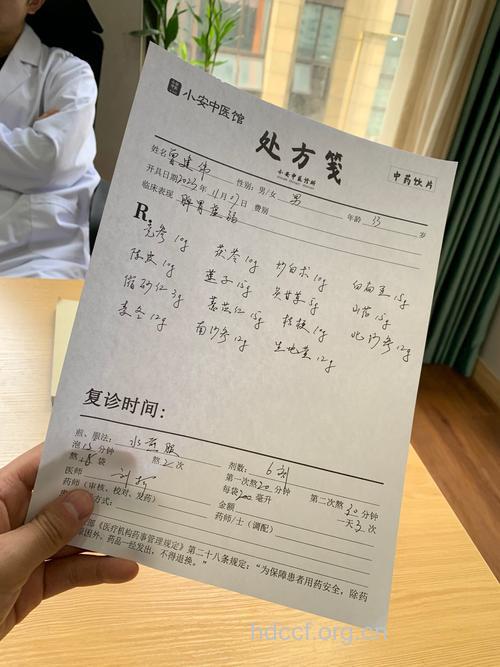 小安中医馆
处方笺
小安中医诊所
中药饮片
姓名 曾建伟 性别:男/女 男 年龄 岁
开具日期2023年11月07日 费别
临床表现 脾胃虚弱
R
党参10g 茯苓10g 炒白术10g 白扁豆15g
陈皮10g 莲子15g 炙甘草5g 山药15g
缩砂仁3g 薏苡仁15g 桔梗10g 北沙参12g
麦冬12g 南沙参12g 生地黄12g
复诊时间:
煎、服法: 水煎服 剂数: 6剂
泡15分钟 熬2次 第一次熬20分钟 第二次熬30分钟
熬 袋 每袋200毫升 一天3次
医师 金额
药师(审核、校对、发药) 药师/士(调配)
方式:
部《医疗机构药事管理规定》第二十八条规定:“为保障患者用药安全,除药
原因外,药品一经发出,不得退换。”
hdccf.org.cn